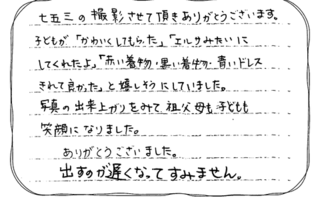 七五三の撮影させて頂きありがとうございます。
子どもが「かわいくしてもらった」「エルサみたいに
してくれたよ」「赤い着物・黒い着物・青いドレス
きれて良かった」と嬉しそうにしていました。
写真の出来上がりをみて、祖父母も子どもも
笑顔になりました。
ありがとうございました。
出すのが遅くなってすみません。